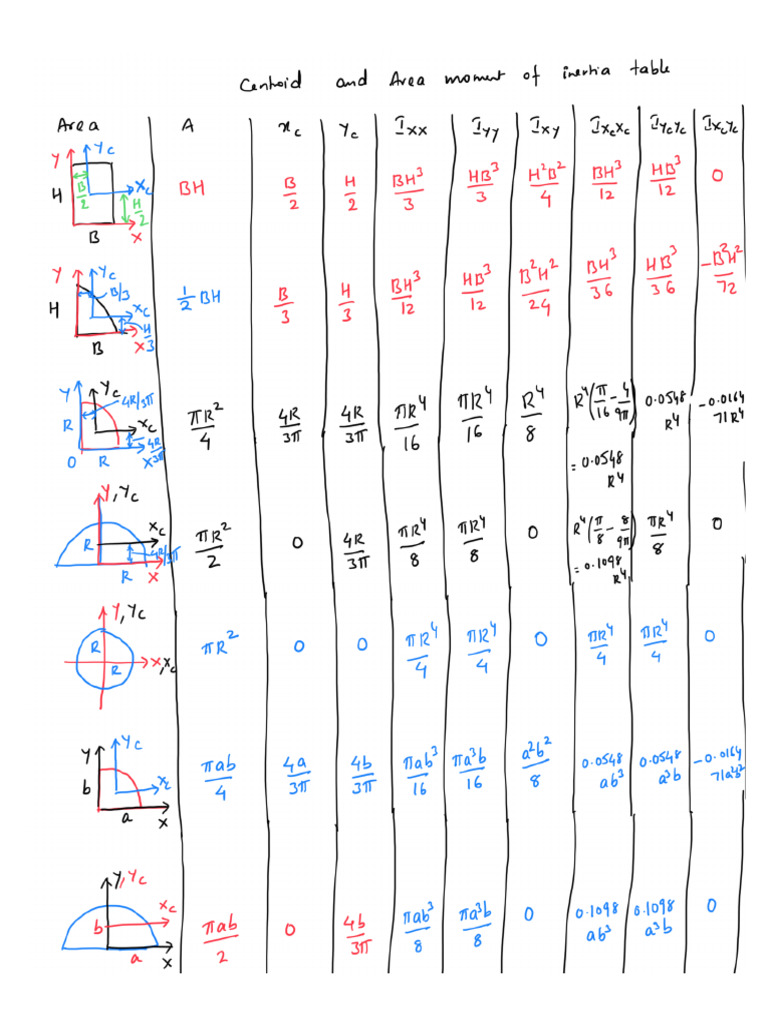 Centroid and Area moment of inertia table
Area A xc Yc Ixx Iyy Ixy Ixcxc Iycyc Ixcyc
Y Yc H B/2 Xc H/2 B X BH B/2 H/2 BH³/3 HB³/3 H²B²/4 BH³/12 HB³/12 0
Y Yc B/3 H Xc H/3 B X 1/2 BH B/3 H/3 BH³/12 HB³/12 B²H²/24 BH³/36 HB³/36 -B²H²/72
Y Yc 4R/3π R Xc 4R/3π O R X πR²/4 4R/3π 4R/3π πR⁴/16 πR⁴/16 R⁴/8 R⁴(π/16 - 4/9π) = 0.0548 R⁴ 0.0548 R⁴ -0.0164 71R⁴
Y, Yc Xc R 4R/3π R X πR²/2 0 4R/3π πR⁴/8 πR⁴/8 0 R⁴(π/8 - 8/9π) = 0.1098 R⁴ πR⁴/8 0
Y, Yc R R X, Xc πR² 0 0 πR⁴/4 πR⁴/4 0 πR⁴/4 πR⁴/4 0
Y Yc b xc a X πab/4 4a/3π 4b/3π πab³/16 πa³b/16 a²b²/8 0.0548 ab³ 0.0548 a³b -0.0164 71a²b²
Y, Yc Xc b a X πab/2 0 4b/3π πab³/8 πa³b/8 0 0.1098 ab³ 0.1098 a³b 0